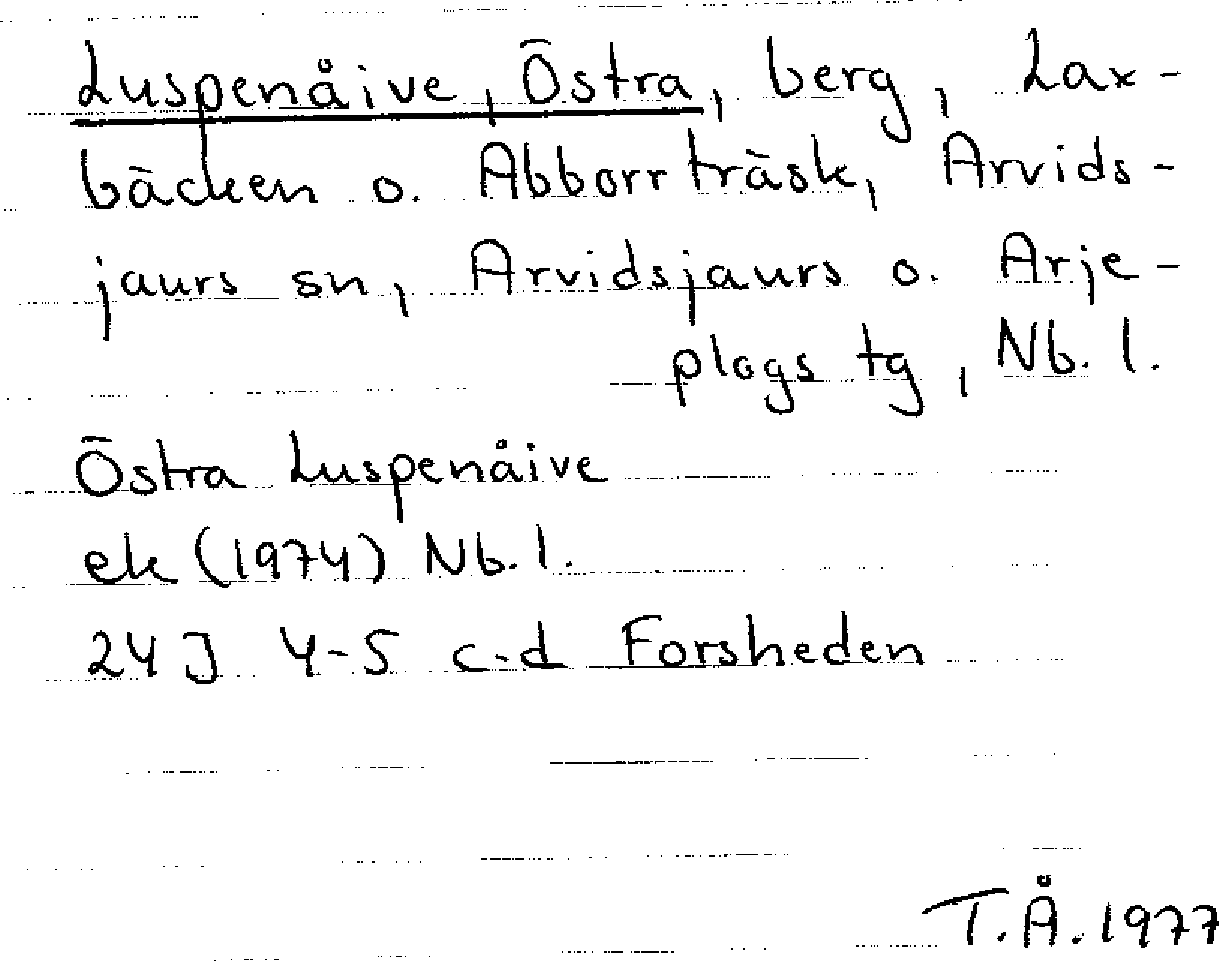 Luspenåive, Östra, berg, Lax-
bäcken o. Abborrträsk, Arvids-
jaurs sn, Arvidsjaurs o. Arje-
plogs tg, Nb. l.
Östra Luspenåive
ek (1974) Nb. l.
24 J 4-5 c-d Forsheden
T.Å. 1977